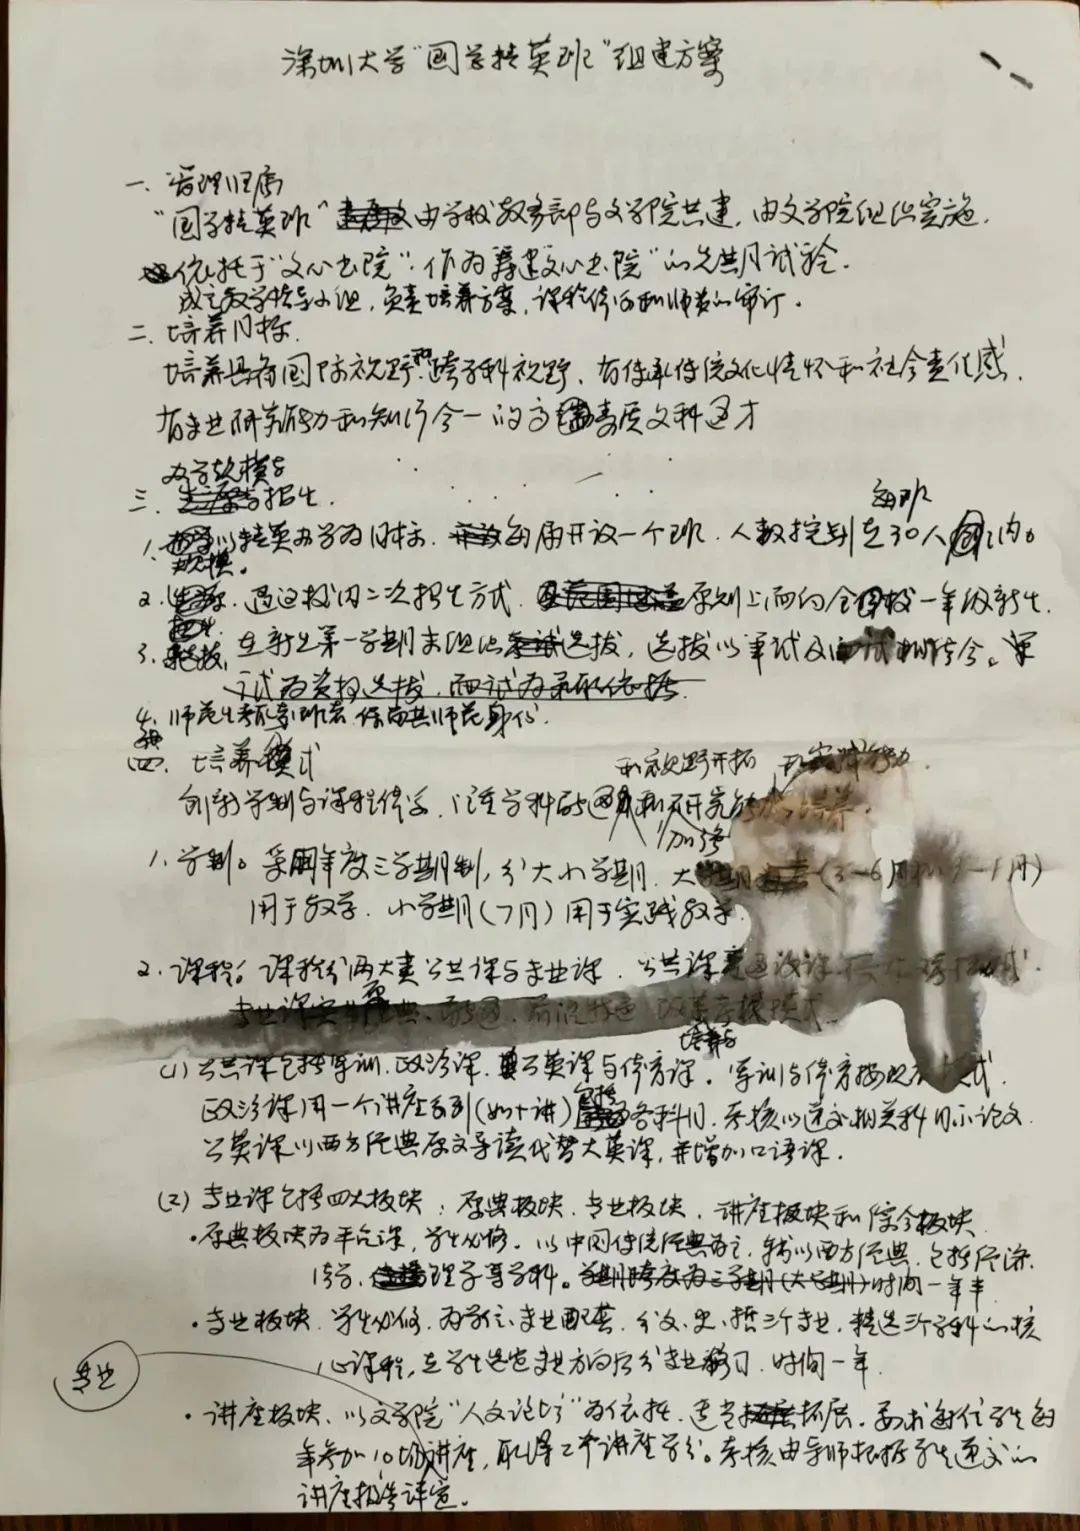 深圳大学“国学精英班”组建方案
一、管理归属
“国学精英班”由学校教务部与文学院共建，由文学院组织实施，
依托于“文心书院”，作为筹建“文心书院”的先期试验。
成立教学指导小组，负责培养方案，课程体系和师资的审订。
二、培养目标
培养具有国际视野和跨学科视野，有传承传统文化情怀和社会责任感，
有专业研究能力和知行合一的高素质文科通才
办学规模与
三、招生
每班
1. 以精英办学为目标，每届开设一个班，人数控制在30人内。
规模。
2. 通过校内二次招生方式，原则上面向全校一年级新生。
3. 选拔，在新生第一学期末组织选拔，选拔以笔试及面试相结合。笔
试为资格选拔，面试为录取依据。
4. 师范生考取班者，保留其师范身份。
四、培养模式
和视野开拓 和实践能力
创新学制与课程体系，注重学科的通和研究培养。
加强
1. 学制。采用年度三学期制，分大小学期，大学期（3-6月和9-1月）
用于教学，小学期（7月）用于实践教学。
2. 课程。课程分两大类公共课与专业课，公共课
专业课原典、改革考核模式
培养与
(1) 公共课包括军训、政治课、公英课与体育课。军训与体育按现有模式，
政治课用一个讲座系列（如十讲）包括各科目，考核以递交相关科目小论文
公英课以西方经典原文导读代替大英课，并增加口语课。
(2) 专业课包括四大板块：原典板块、专业板块、讲座板块和综合板块
·原典板块为平台课，学生必修，以中国传统经典为主，辅以西方经典，包括经济
理学等学科。学期跨度为三学期（大学期）时间一年半
·专业板块，学生必修，为学位专业配套，分文、史、哲三个专业，精选三个学科的核
心课程，在学生选定专业方向后分专业修习，时间一年
专业
·讲座板块，以文学院“人文论坛”为依托，适当拓展，要求每位学生每
年参加10场讲座，取得2个讲座学分。考核由导师根据学生递交的
讲座报告评定。